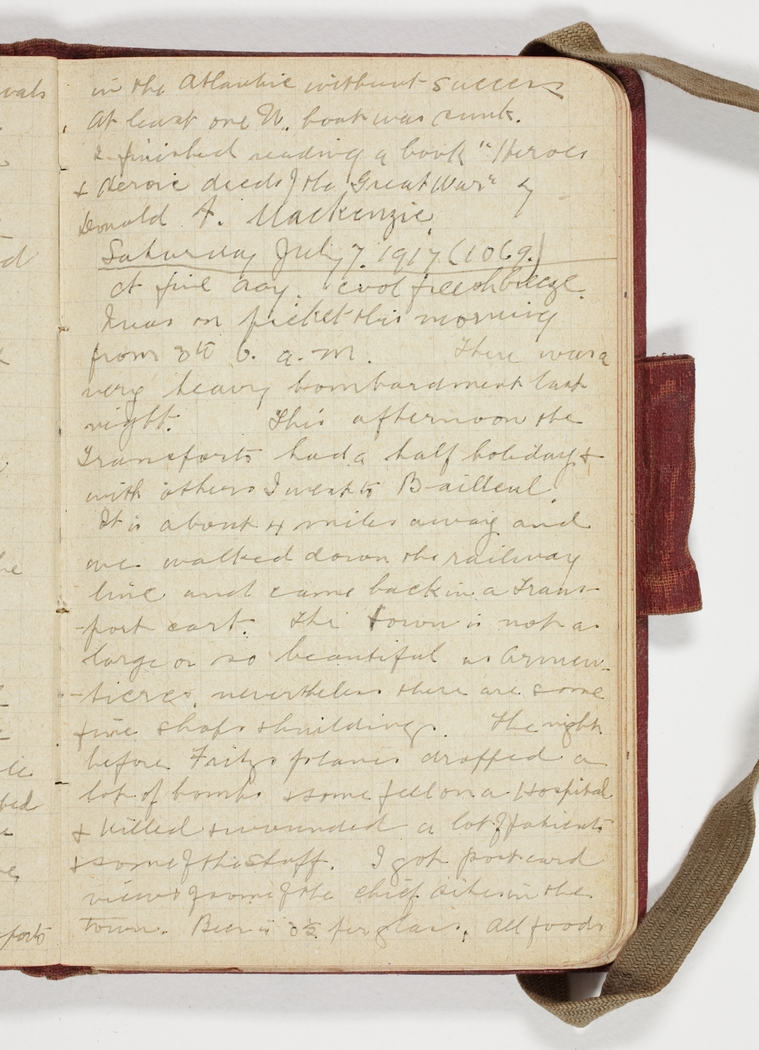 in the Atlantic without success
At least one U. boat was sunk.
I finished reading a book "Heroes
& Heroic deeds of the Great War" by
Donald A. Mackenzie
Saturday July 7. 1917 (1069.)
A fine day. cool fresh breeze.
I was on picket this morning
from 3 to 6. a.m. There was a
very heavy bombardment last
night. This afternoon the
Transports had a half holiday &
with others I went to Bailleul.
It is about 4 miles away and
we walked down the railway
line and came back in a Trans-
-port cart. The town is not as
large or so beautiful as Armen-
-tieres, nevertheless there are some
fine shops & buildings. The night
before Fritz's planes dropped a
lot of bombs & some fell on a Hospital
& killed & wounded a lot of patients
& some of the staff. I got postcard
views of some of the chief sites in the
town. Beer is per glass, All foods
vals
d
he
ted
ports